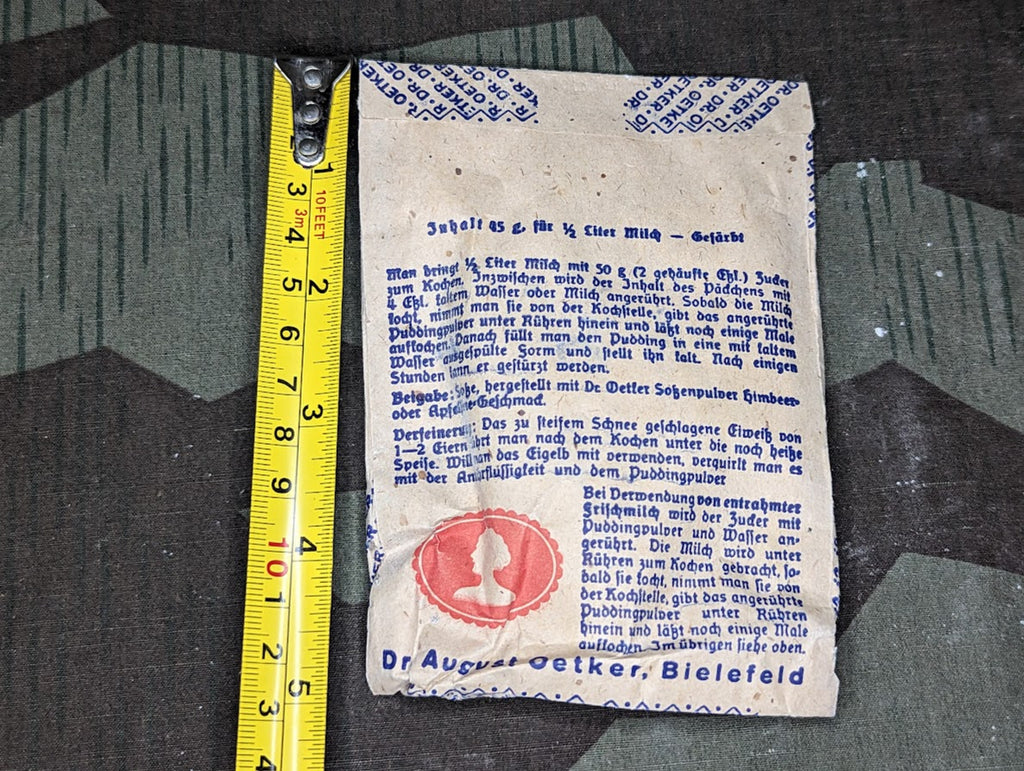 DR. OETKER. DR. OETKER
Inhalt 45 g. für ½ Liter Milch — Gefärbt
Man bringt ½ Liter Milch mit 50 g (2 gehäufte Eßl.) Zucker
zum Kochen. Inzwischen wird der Inhalt des Päckchens mit
4 Eßl. kaltem Wasser oder Milch angerührt. Sobald die Milch
kocht, nimmt man sie von der Kochstelle, gibt das angerührte
Puddingpulver unter Rühren hinein und läßt noch einige Male
aufkochen. Danach füllt man den Pudding in eine mit kaltem
Wasser ausgespülte Form und stellt ihn kalt. Nach einigen
Stunden kann er gestürzt werden.
Beigabe: Soße, hergestellt mit Dr. Oetker Soßenpulver Himbeer-
oder Apfelsine-Geschmack.
Verfeinerung: Das zu steifem Schnee geschlagene Eiweiß von
1—2 Eiern rührt man nach dem Kochen unter die noch heiße
Speise. Will man das Eigelb mit verwenden, verquirlt man es
mit der Anrührflüssigkeit und dem Puddingpulver
Bei Verwendung von entrahmter
Frischmilch wird der Zucker mit
Puddingpulver und Wasser an-
gerührt. Die Milch wird unter
Rühren zum Kochen gebracht, so-
bald sie kocht, nimmt man sie von
der Kochstelle, gibt das angerührte
Puddingpulver unter Rühren
hinein und läßt noch einige Male
aufkochen. Im übrigen siehe oben.
Dr August Oetker, Bielefeld
1
3
3m
10FEET
4
5
2
6
7
3
8
9
4
10
1
2
5
3
4